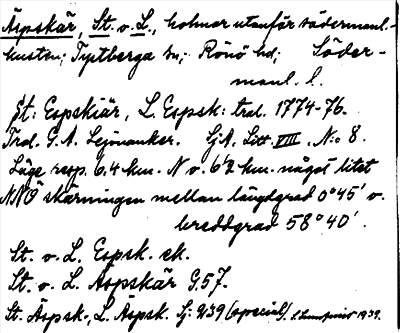 Äspskär, St. o. L., holmar utanför södermanl.-
kusten; Tystberga sn; Rönö hd; Söder-
manl. l.
St: Espskiär, L. Espsk: trol. 1774-76.
Trol. G. A. Lejonanker. SjA, Litt VIII. N:o 8.
Läge resp. 6.4 km. N o. 6.2 km. något litet
NNÖ skärningen mellan längdgrad 0°45' o.
breddgrad 58°40'.
St. o. L. Espsk. ek.
St. o. L. Äspskär G.57.
St. Äspsk., L. Äspsk. Sj: 939 (special) 1939.